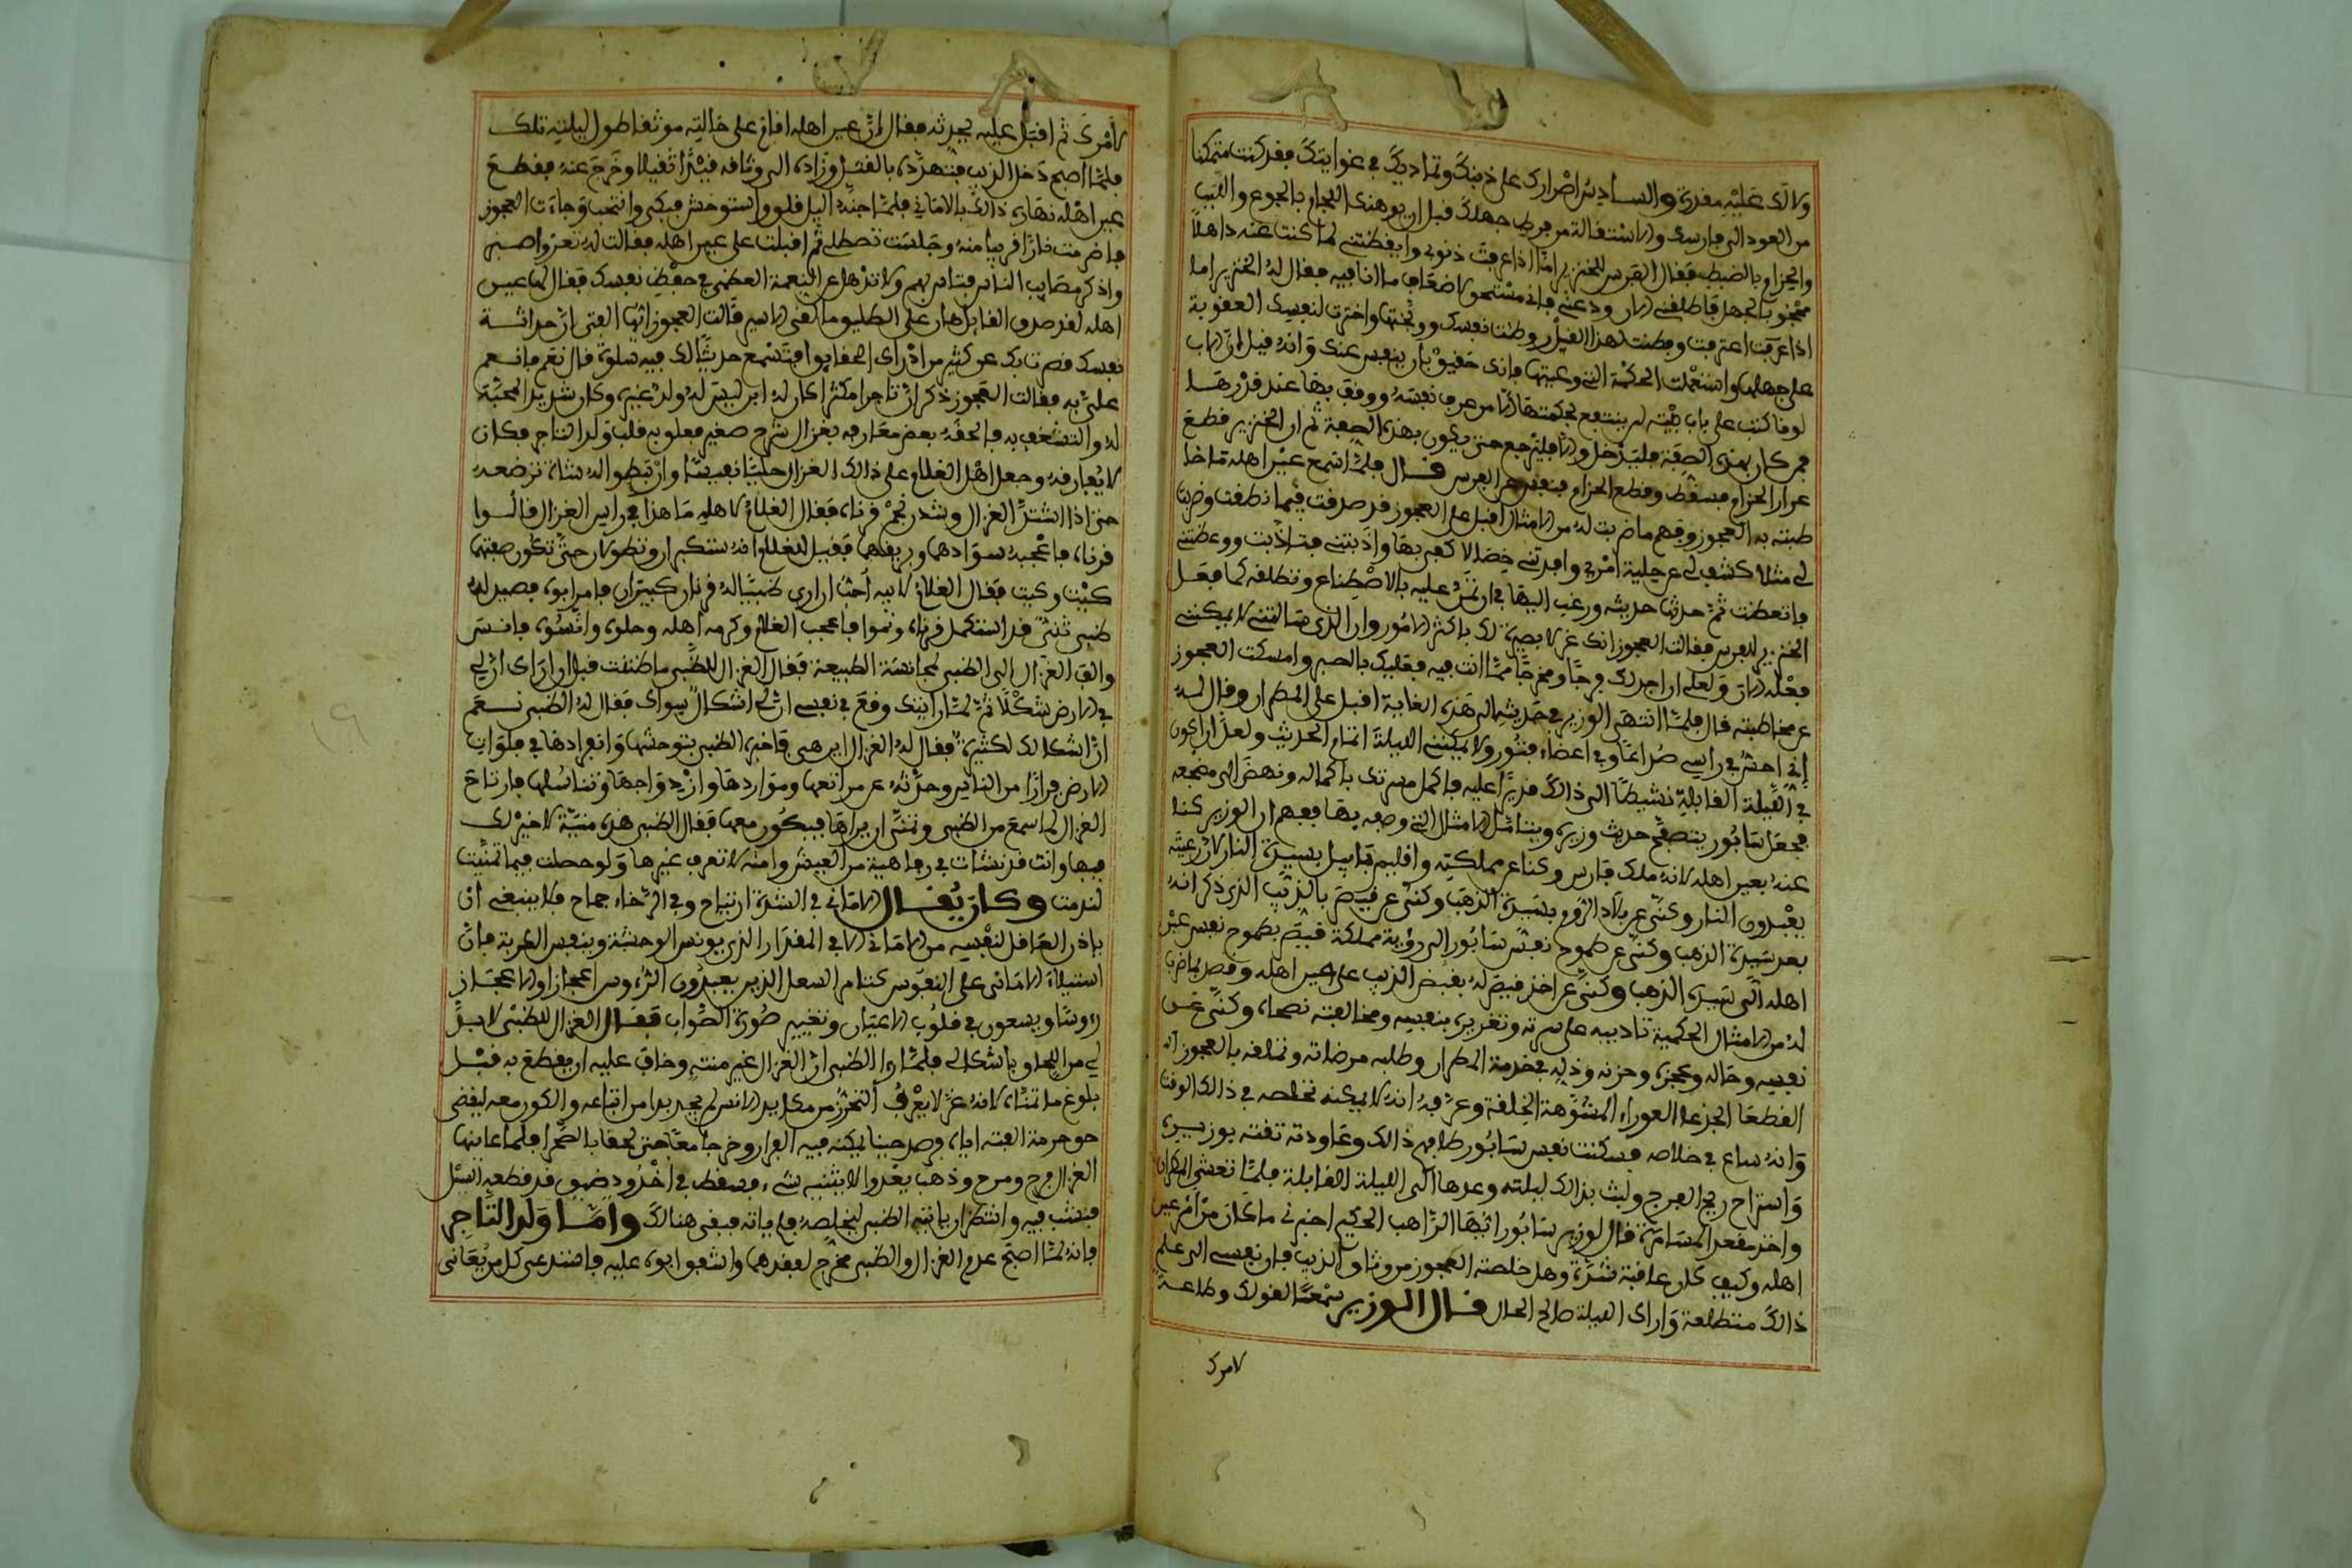 ولالك عليه مقدرة والسادس اصرارك على ذنبك وتماديك في غوايتك فقد كنت متمكنا
من العود الى فارسك والاستقالة من فرط جهلك قبل ان يوهنك اللجام بالجوع والتعب
والحزام بالضبط فقال الفرس للخنزير اما اذا عرفت ذنوبى وايقظتنى لما كنت عنه ذاهلا
محجوبا بالجهل فاطلقنى الان ودعنى فانى مستحق لاضعاف ما انا فيه فقال له الخنزير اما
اذا عرفت اعترفت وفطنت لهذا القيل ووطنت نفسك ووبختها واخترت لنفسك العقوبة
على جهلها واستعملت الحكمة التى وعيتها فانك حقيق بان ينفس عنك وانه قيل ان الباب
لو ما كتب على باب بيته لم ينتفع بحكمتها الا من عرف نفسه ووقف بها عند قدرها
فمن كان بهذه الصفة فليدخل والا فليرجع حتى يكون بهذه الصفة ثم ان الخنزير قطع
عذار الحزام فسقط وقطع الحزام فنفس عن الفرس قال فلما سمع عير اهله ما خا
طبته به العجوز وفهم ما ضربت له من الامثال اقبل على العجوز قد صدقت فيما نطقت وضربت
لى مثلا كشف لى عن جلية امرى وافدتنى خصالا كفر بها وادبتنى فتادبت ووعظتنى
فاتعظت ثم حدثها حديثه ورغب اليها في ان تمن عليه بالاصطناع وتطلقه كما فعل
الخنزير للفرس فقالت العجوز انك غر لا بصيرة لك باكثر الامور وان الذى سالتنى لا يمكننى
فعله الان ولعلى ان اجد لك فرجا ومخرجا مما انت فيه فعليك بالصبر وامسكت العجوز
عن مخاطبته قال فلما انتهى الوزير في حديثه الى هذه الغاية اقبل على المطران وقال له
انى احس في راسى صداعا وفي اعضاى فتورا ولا يمكننى الليلة اتمام الحديث ولعل ان اكون
في الليلة القابلة نشيطا الى ذالك قديرا عليه فاكمل مسرتك باكماله ونهض الى مضجعه
فجعل سابور يتصفح حديث وزيره ويتامل الامثال التى وصفه بها ففهم ان الوزير كنا
عنه بعير اهله لانه ملك فارس وكنا عن مملكته واقليم بابل بسيدة النار لان رعيته
يعبدون النار وكنى عن بلاد الروم بسيدة الذهب وكنى عن قيصر بالذئب الذى ذكر انه
بعد سيدة الذهب وكنى عن طموح نفس سابور الى رؤية مملكة قيصر بطموح نفس عير
اهله الى سيدة الذهب وكنى عن اخذ قيصر له بقبض الذيب على عير اهله وقصد بما ضرب
له من الامثال الحكمية تاديبه على شره وتغريره بنفسه ومخالفته نصحاءه وكنى عن
نفسه وحاله وعجزه وحزنه وذله في خدمة المطران وطلبه مرضاته وتملقه بالعجوز
القطعا الجزعا العوراء المشوهة الخلقة وعرفه انه لا يمكنه تخلصه في ذالك الوقت
وانه ساع في خلاصه فسكنت نفس سابور لما فهم ذالك وعاودته ثقته بوزيره
واستراح ريح الفرج ولبث بذالك ليلته وغدها الى الليلة القابلة فلما تعشى المطران
واخذ مقعد المسامرة قال لوزير سابور ايها الراهب الحكيم اخبرنى ما كان من امر عير
اهله وكيف كان عاقبة شدته وهل خلصته العجوز من وثاق الذيب فان نفسى الى علم
ذالك متطلعة واراك الليلة صالح الحال قال الوزير سمعا لقولك وطاعة
لامرك
لامرك ثم اقبل عليه يحدثه فقال ان عير اهله اقام على حالته موثقا طول ليلته تلك
فلما اصبح دخل الذيب فتهدده بالقتل وزاده الى وثاقه قيدا ثقيلا وخرج عنه فقطع
عير اهله نهاره ذالك بالامانى فلما اجنه اليل قلق واستوحش فبكى وانتحب وجاءت العجوز
فاضرمت نارا قريبا منه وجلست تصطلى ثم اقبلت على عير اهله فقالت له تعز واصبر
واذكر مصايب الناس فتاس بهم ولا تذهل عن النعمة العظمى في حفظ نفسك فقال لها عير
اهله لقد صدق القائل هان على الطليق ما لقى الاسير قالت العجوز ايها الفتى ان حداثة
نفسك قصرت بك عن كثير من ادراك الحقايق افتسمع حديثا لك فيه سلوة قال نعم فانعم
على به فقالت العجوز ذكر ان تاجرا مكثرا كان له ابن ليس له ولد غيره وكان شديد المحبة
له والتشغف به فاتحفه بعض معارفه بغزال شرح صغير فعلق به قلب ولد التاجر فكان
لا يفارقه وجعل اهل الغلام على ذالك الغزال حليا نفيسا وارتبطوا له شاة ترضعه
حتى اذا اشتد الغزال وشدن نجم قرناه فقال الغلام لاهله ما هذا في راس الغزال قالوا
قرناه فاعجبه سوادهما وبريقهما فقيل للغلام انه ستكبر ان وتطولان حتى تكون صفتهما
كيت وكيت فقال الغلام لابيه احب ان ارى ظبيا له قرنان كبيران فامر ابوه فصيد له
ظبى ثنى قد استكمل قرناه ونموا فاعجب الغلام وكرمه اهله وحلوه وانسوه فانس
والف الغزال الى الظبى لمجانسة الطبيعة فقال الغزال للظبى ما ظننت قبل ان اراك ان لى
في الارض شكلا ثم لما رايتك وقع في نفسى ان لى اشكال سواك فقال له الظبى نعم
ان اشكالك لكثيرة فقال له الغزال اين هى فاخبره الظبى بتوحشها وانفرادها في فلوات
الارض فرارا من الناس وحدثه عن مراتعها ومواردها وازدواجها وتناسلها فارتاح
الغزال لما سمع من الظبى وتمنى ان يراها فيكون معها فقال الظبى هذه منية لا خير لك
فيها وانت قد نشات في رفاهية من العيش وامنة لا تعرف غيرها ولو حصلت فيما تمنيت
لندمت وكان يقال الامانى في الشدة ارتياح وفي الرخاء جماح فلا ينبغى ان
ياذن العاقل لنفسه من الامانى الا في المقدار الذى يونس الوحشة وينفس الكربة فان
استيلاء الامانى على النفوس كتنام السفل الذين يعبدون الرؤوس اعجازا والاعجاز
رؤوسا ويسعون في قلوب الاعيان وتغيير صورة الصواب فقال الغزال للظبى لا بد
لى من اللحاق باشكالى فلما را الظبى ان الغزال غير منته وخاف عليه ان يقطع به قبل
بلوغ ما تمناه لانه غر لا يعرف التحرز من مكايد الانس لم يجد بدا من اتباعه والكون معه ليقضى
حق حرمة الفته اياه فرصد حينا يمكنه فيه الفرار وخرجا معا حتى لحقا بالصحرا فلما عاينها
الغزال فرح ومرح وذهب يعدوا لا يثنيه شىء فسقط في اخدود ضيق قد قطعه السيل
فنشب فيه وانتظر ان ياتيه الظبى ليخلصه فلم ياته فبقى هنالك واما ولد التاجر
فانه لما اصبح عدم الغزال والظبى فخرج لفقدهما واشفق ابوه عليه فاستدعى كل من يعانى